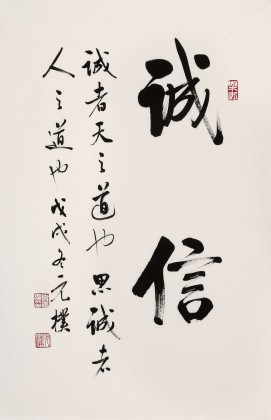 诚信
诚者天之道也思诚者
人之道也戊戌冬元朴